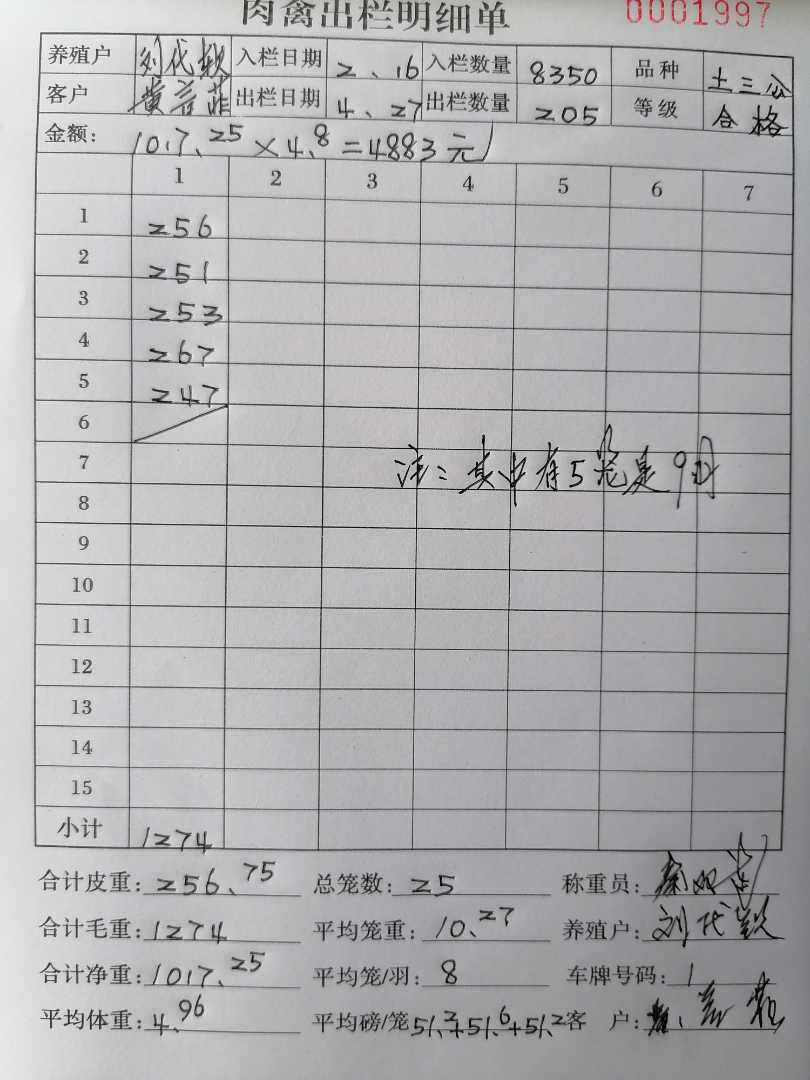 肉禽出栏明细单 0001997
养殖户 刘代钦 入栏日期 2、16 入栏数量 8350 品种 土三公
客户 黄言菲 出栏日期 4、27 出栏数量 205 等级 合格
金额: 1017.25×4.8=4883元
1 2 3 4 5 6 7
1 256
2 251
3 253
4 267
5 247
6
7 注:其中有5笼是9只
8
9
10
11
12
13
14
15
小计 1274
合计皮重: 256.75 总笼数: 25 称重员:
合计毛重: 1274 平均笼重: 10.27 养殖户: 刘代钦
合计净重: 1017.25 平均笼/羽: 8 车牌号码: 1
平均体重: 4.96 平均磅/笼 51.2+51.6+51.2 客 户: